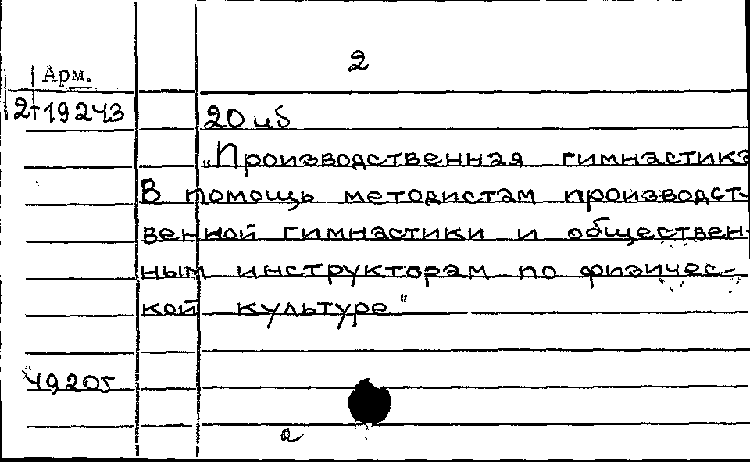 2
Арм.
2т19243
20 иб
„Производственная гимнастика
В помощь методистам производст-
венной гимнастики и обществен-
ным инструкторам по физичес-
кой культуре"
49205
а